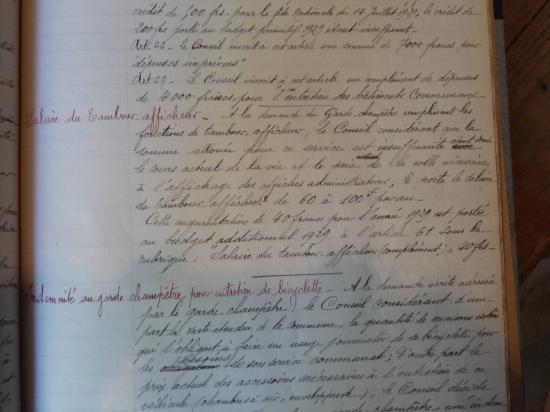 crédit de 500 frs. pour la fête nationale du 14 Juillet 1929, le crédit de
200 frs porté au budget primitif 1929 étant insuffisant.
Art. 66 - Le Conseil inscrit à cet article une somme de 7000 francs, pour
dépenses imprévues"
Le Conseil inscrit à cet article en complément de dépenses
de 4000 francs, pour l'entretien des bâtiments communaux
Salaire du tambour-afficheur. - A la demande du Garde-champêtre remplissant les
fonctions de tambour-afficheur, le Conseil considérant que la
somme allouée pour ce service est insuffisante étant donné
le cours actuel de la vie et le prix de la colle nécessaire
à l'affichage des affiches administratives, porte le salaire
du tambour-afficheur de 60 à 100 f par an.
Cette augmentation de 40 francs pour l'année 1929 est portée
au budget additionnel 1929 à l'article 61 sous la
rubrique: "Salaire du tambour-afficheur (complément) = 40 frs.
Indemnité au garde champêtre, pour entretien de bicyclette - A la demande écrite adressée
par le garde-champêtre, le Conseil considérant d'une
part la vaste étendue de la commune, la quantité de maisons
qui l'obligent à faire un usage journalier de sa bicyclette pour
les besoins de son service communal; d'autre part le
prix actuel des accessoires nécessaires à l'entretien de ce
véhicule (chambres à air, enveloppes...), le Conseil décide